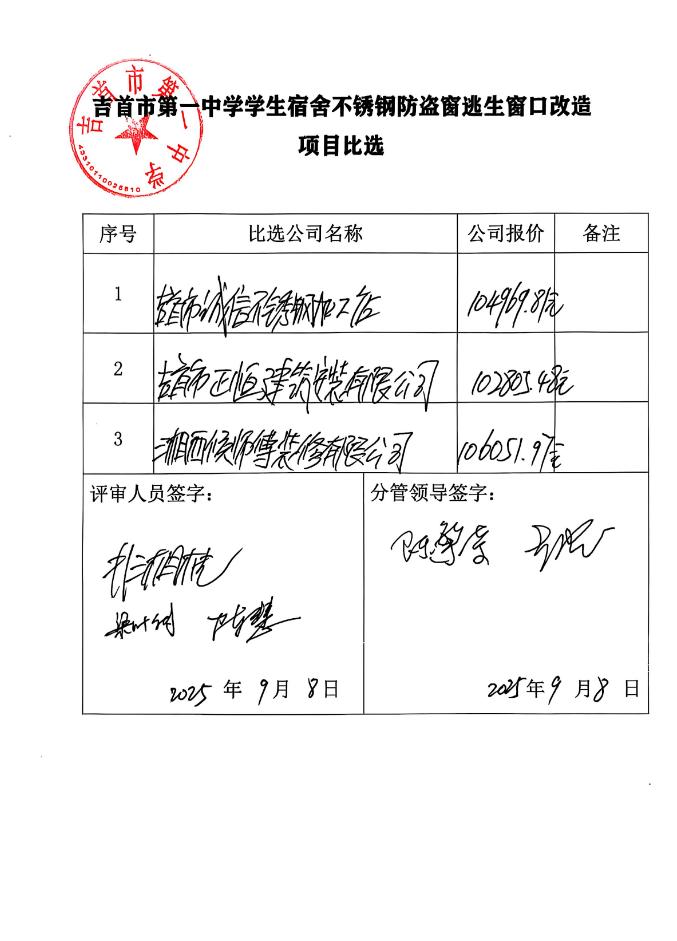 吉首市第一中学
43310110026810
吉首市第一中学学生宿舍不锈钢防盗窗逃生窗口改造
项目比选
序号 比选公司名称 公司报价 备注
1 吉首市诚信不锈钢加工店 104969.81元
2 吉首市正恒建筑安装有限公司 102805.48元
3 湘西侯师傅装修有限公司 106051.97元
评审人员签字： 分管领导签字：
2025年9月8日 2025年9月8日